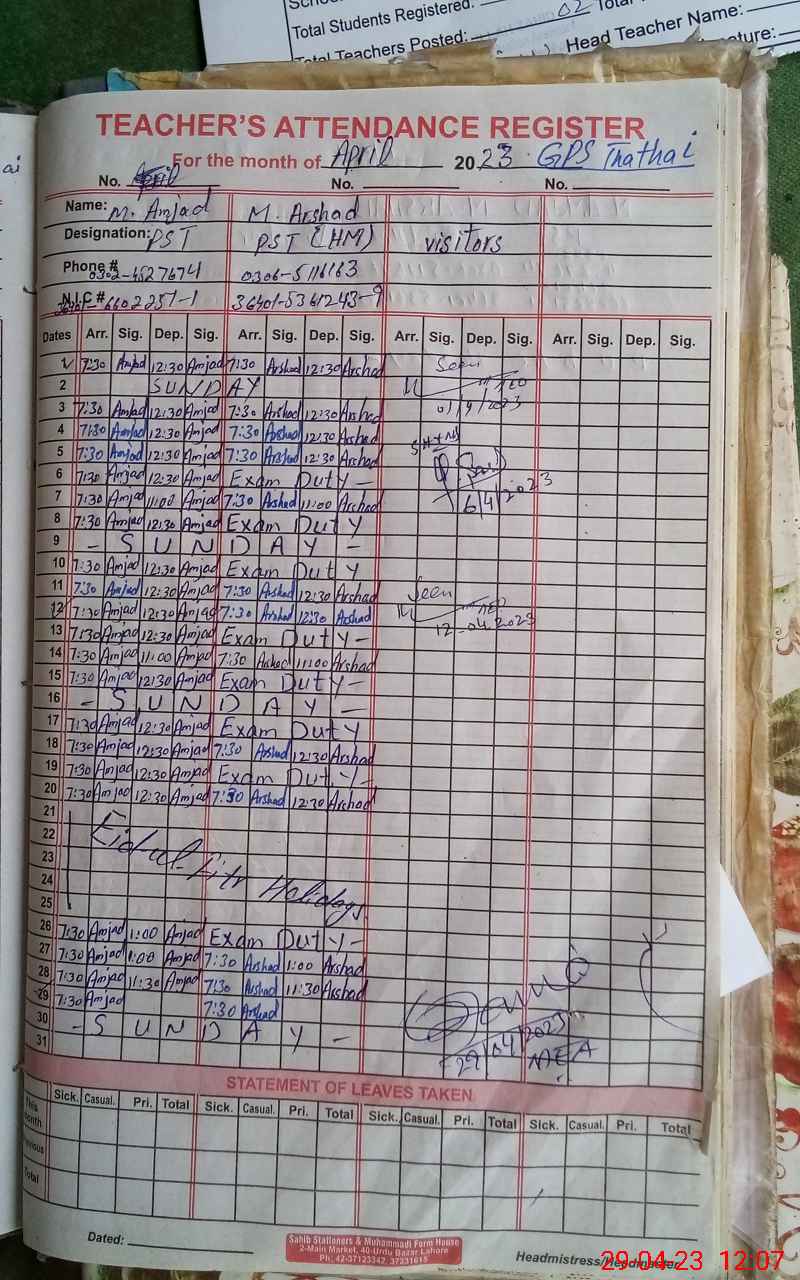 Total Students Registered: 02 Total
Total Teachers Posted: Head Teacher Name:
TEACHER'S ATTENDANCE REGISTER
For the month of April 2023 GPS Thathai
No. April No. No.
Name: M. Amjad M. Arshad
Designation: PST PST (HM) visitors
Phone # 0302-4527674 0306-5116163
N.I.C # 36401-5361243-9
Dates Arr. Sig. Dep. Sig. Arr. Sig. Dep. Sig. Arr. Sig. Dep. Sig. Arr. Sig. Dep. Sig.
1 7:30 Amjad 12:30 Amjad 7:30 Arshad 12:30 Arshad Seen
2 SUNDAY
3 7:30 Amjad 12:30 Amjad 7:30 Arshad 12:30 Arshad
4 7:30 Amjad 12:30 Amjad 7:30 Arshad 12:30 Arshad
5 7:30 Amjad 12:30 Amjad 7:30 Arshad 12:30 Arshad
6 7:30 Amjad 12:30 Amjad Exam Duty -
7 7:30 Amjad 11:00 Amjad 7:30 Arshad 11:00 Arshad 6/4/2023
8 7:30 Amjad 12:30 Amjad Exam Duty
9 - SUNDAY -
10 7:30 Amjad 12:30 Amjad Exam Duty
11 7:30 Amjad 12:30 Amjad 7:30 Arshad 12:30 Arshad Seen
12 7:30 Amjad 12:30 Amjad 7:30 Arshad 12:30 Arshad
13 7:30 Amjad 12:30 Amjad Exam Duty - 12-04-2023
14 7:30 Amjad 11:00 Amjad 7:30 Arshad 11:00 Arshad
15 7:30 Amjad 12:30 Amjad Exam Duty -
16 - SUNDAY -
17 7:30 Amjad 12:30 Amjad Exam Duty
18 7:30 Amjad 12:30 Amjad 7:30 Arshad 12:30 Arshad
19 7:30 Amjad 12:30 Amjad Exam Duty -
20 7:30 Amjad 12:30 Amjad 7:30 Arshad 12:30 Arshad
21
22 Eidul-Fitr Holidays
23
24
25
26 7:30 Amjad 1:00 Amjad Exam Duty -
27 7:30 Amjad 1:00 Amjad 7:30 Arshad 1:00 Arshad
28 7:30 Amjad 11:30 Amjad 7:30 Arshad 11:30 Arshad
29 7:30 Amjad 7:30 Arshad
30 - SUNDAY - 29/04/2023
31 MEA
STATEMENT OF LEAVES TAKEN
Sick. Casual. Pri. Total Sick. Casual. Pri. Total Sick. Casual. Pri. Total Sick. Casual. Pri. Total
This month
Previous
Total
Dated:
Sahib Stationers & Muhammadi Form House
2-Main Market, 40-Urdu Bazar Lahore
Ph: 42-37123347, 37231615
Headmistress/Headmaster
29-04-23 12:07